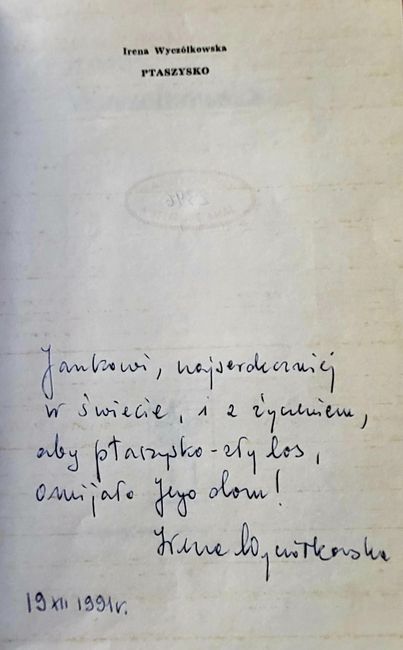 Irena Wyczółkowska
PTASZYSKO
Jankowi, najserdeczniej
w świecie, i z życzeniem,
aby ptaszysko-zły los,
omijało Jego dom!
Irena Wyczółkowska
19 XII 1991r.